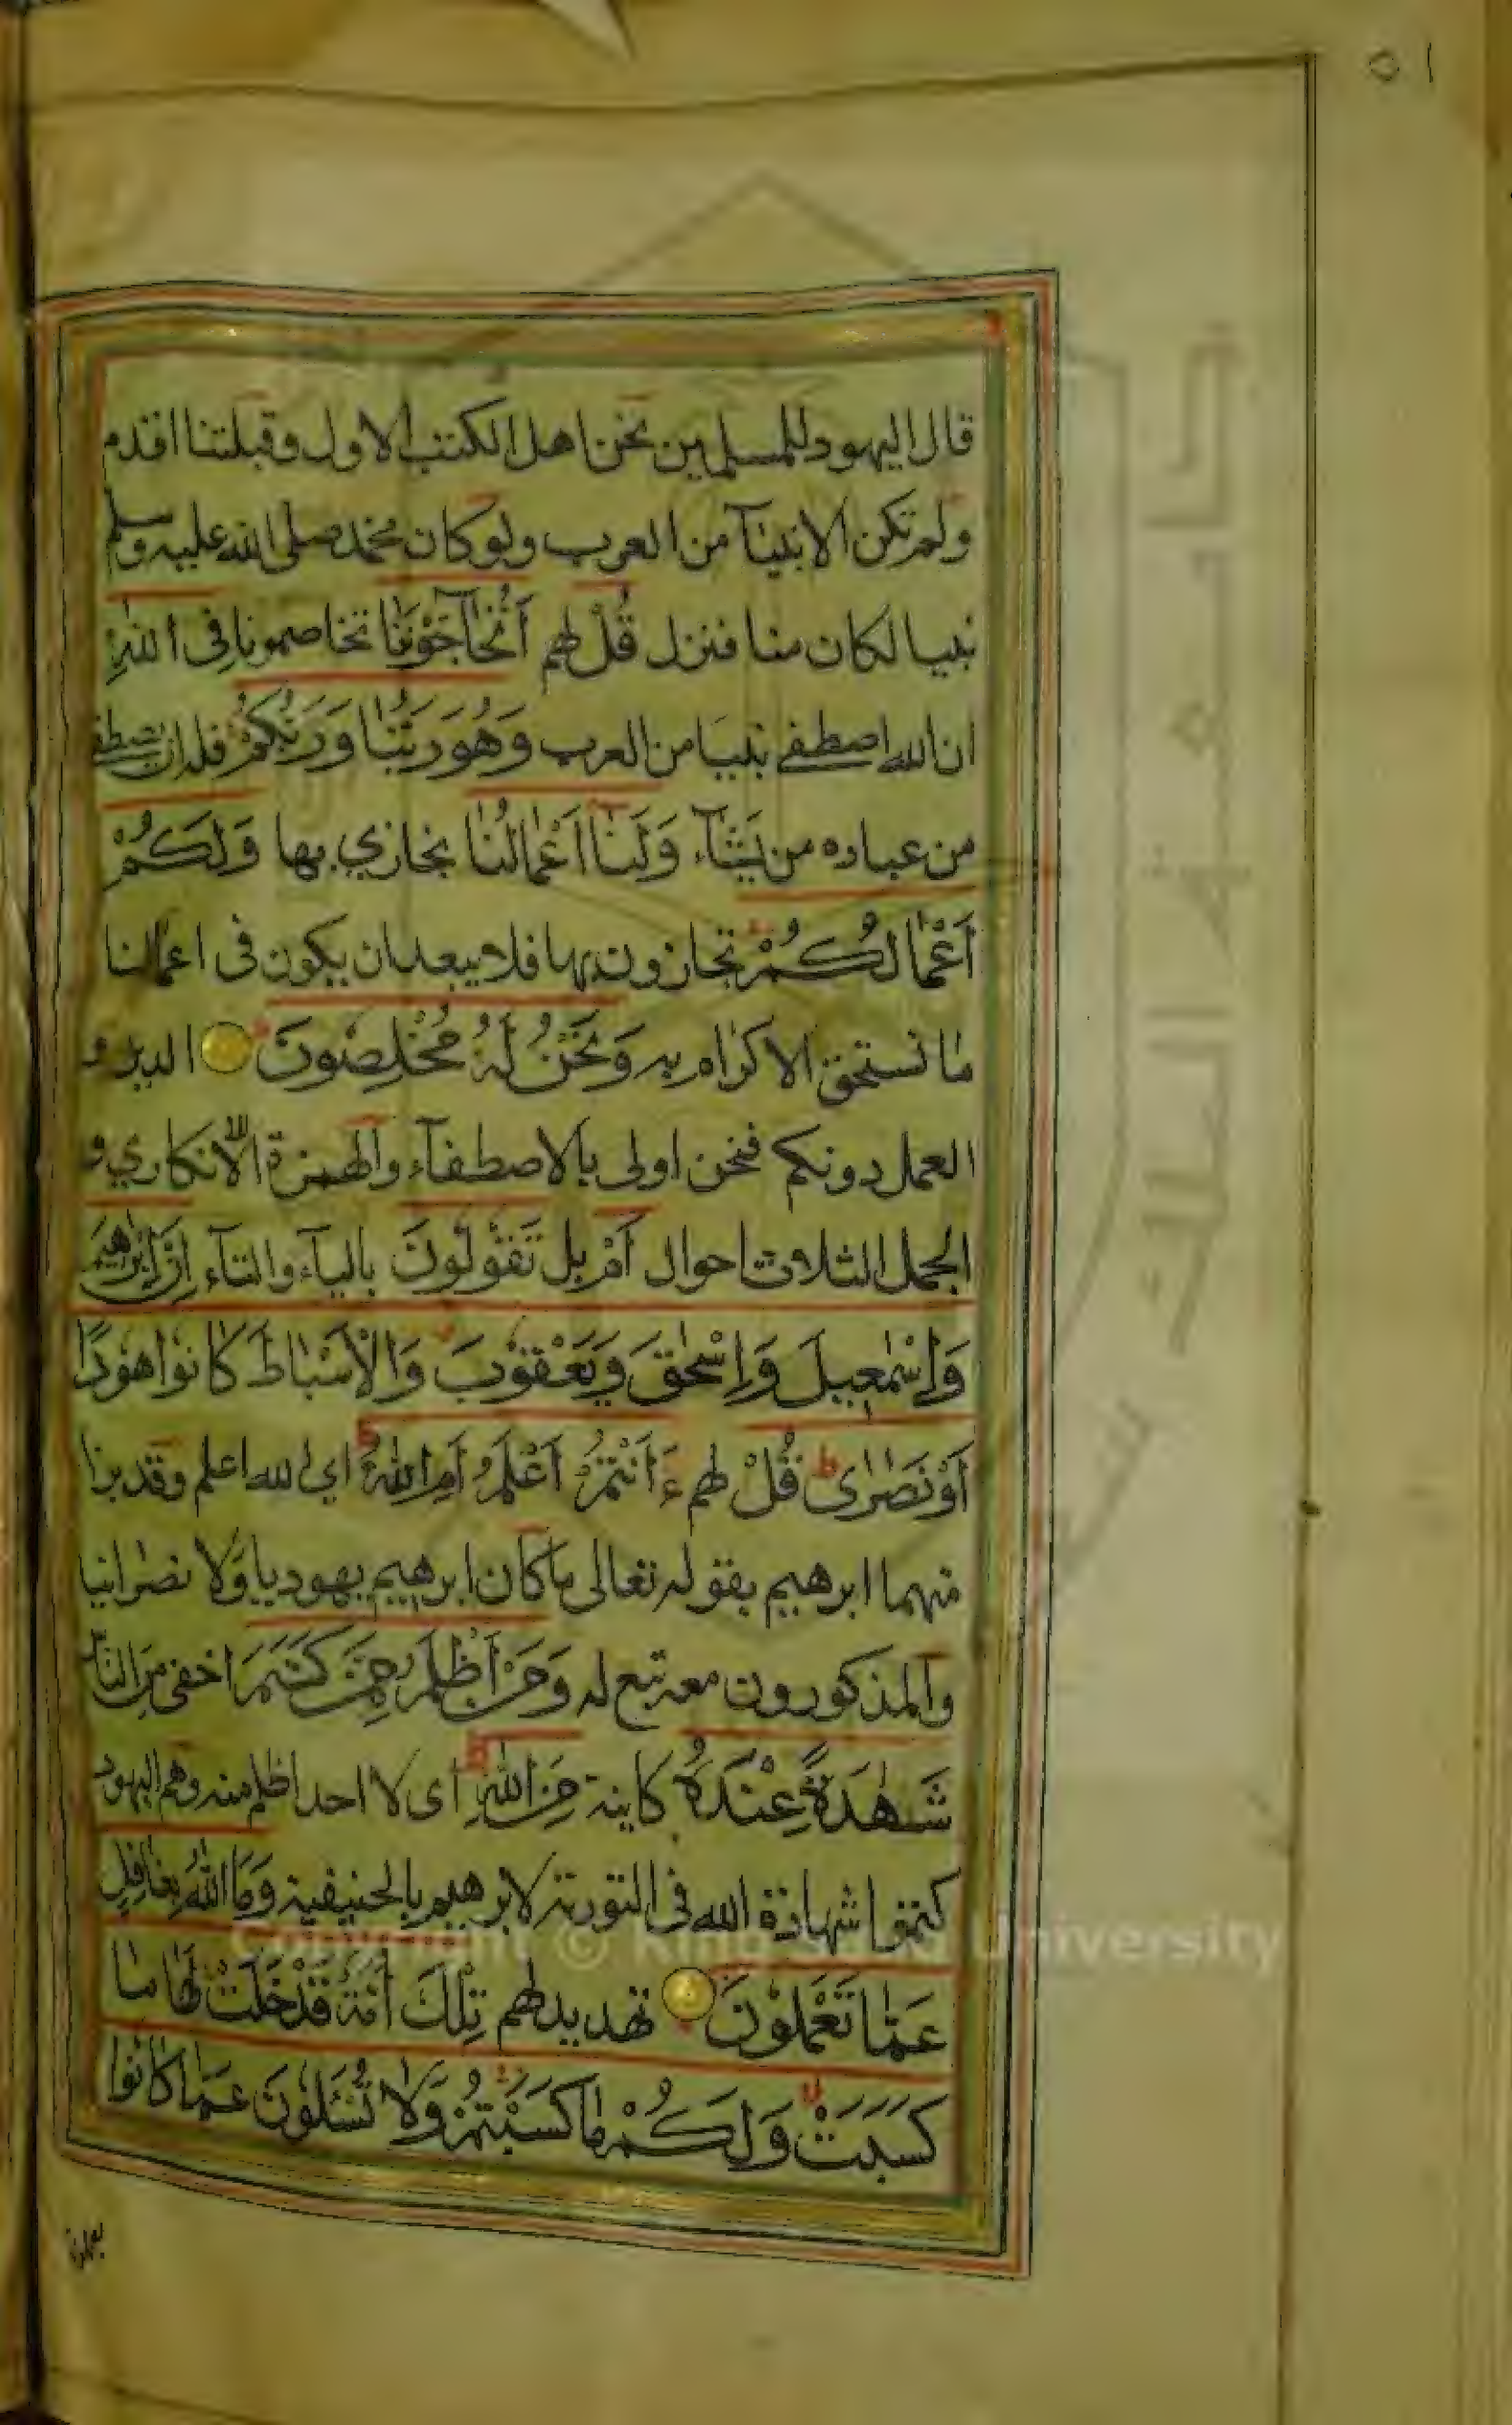 ٥١
قال اليهود للمسلمين نحن اهل الكتب الاول وقبلتنا اقدم
ولم تكن الانبيآ من العرب ولو كان محمد صلى الله عليه وسلم
نبيا لكان منا فنزل قُلْ لهم أَتُحَآجُّوْنَنَا تخاصموننا فِى اللهِ
ان الله اصطفى نبيا من العرب وَهُوَ رَبُّنَا وَرَبُّكُمْ فله ان يصطفى
من عباده من يَّشَآء وَلَنَآ اَعْمَالُنَا نجازي بها وَلَكُمْ
اَعْمَالُكُمْ تجازون بها فلا يبعد ان يكون فى اعمالنا
ما نستحق الاكراه به وَنَحْنُ لَهٗ مُخْلِصُونَ الدين و
العمل دونكم فنحن اولى بالاصطفآء والهمزة للانكاري و
الجمل الثلاث احوال اَمْ بل تَقُولُونَ باليآء والتآء اِنَّ اِبْرٰهٖيمَ
وَاِسْمٰعِيلَ وَاِسْحٰقَ وَيَعْقُوْبَ وَالْاَسْبَاطَ كَانُوْا هُوْدًا
اَوْ نَصٰرٰى قُلْ لهم ءَاَنْتُمْ اَعْلَمُ اَمِ اللهُ اي الله اعلم وقد برا
منهما ابرهيم بقوله تعالى ما كان ابرهيم يهوديا وَّلا نصرانيا
والمذكورون معه تبع له وَمَنْ اَظْلَمُ مِمَّنْ كَتَمَ اخفى مِن الناس
شَهٰدَةً عِنْدَهٗ كاينة مِنَ اللهِ اى لا احد اظلم منه وهم اليهود
كتموا شهادة الله فى التورية لابرهيم بالحنيفية وَمَا اللهُ بِغَافِلٍ
عَمَّا تَعْمَلُوْنَ تهديد لهم تِلْكَ اُمَّةٌ قَدْ خَلَتْ لَهَا مَا
كَسَبَتْ وَلَكُمْ مَا كَسَبْتُمْ وَلَا تُسْئَلُوْنَ عَمَّا كَانُوْا
Copyright © King Saud University